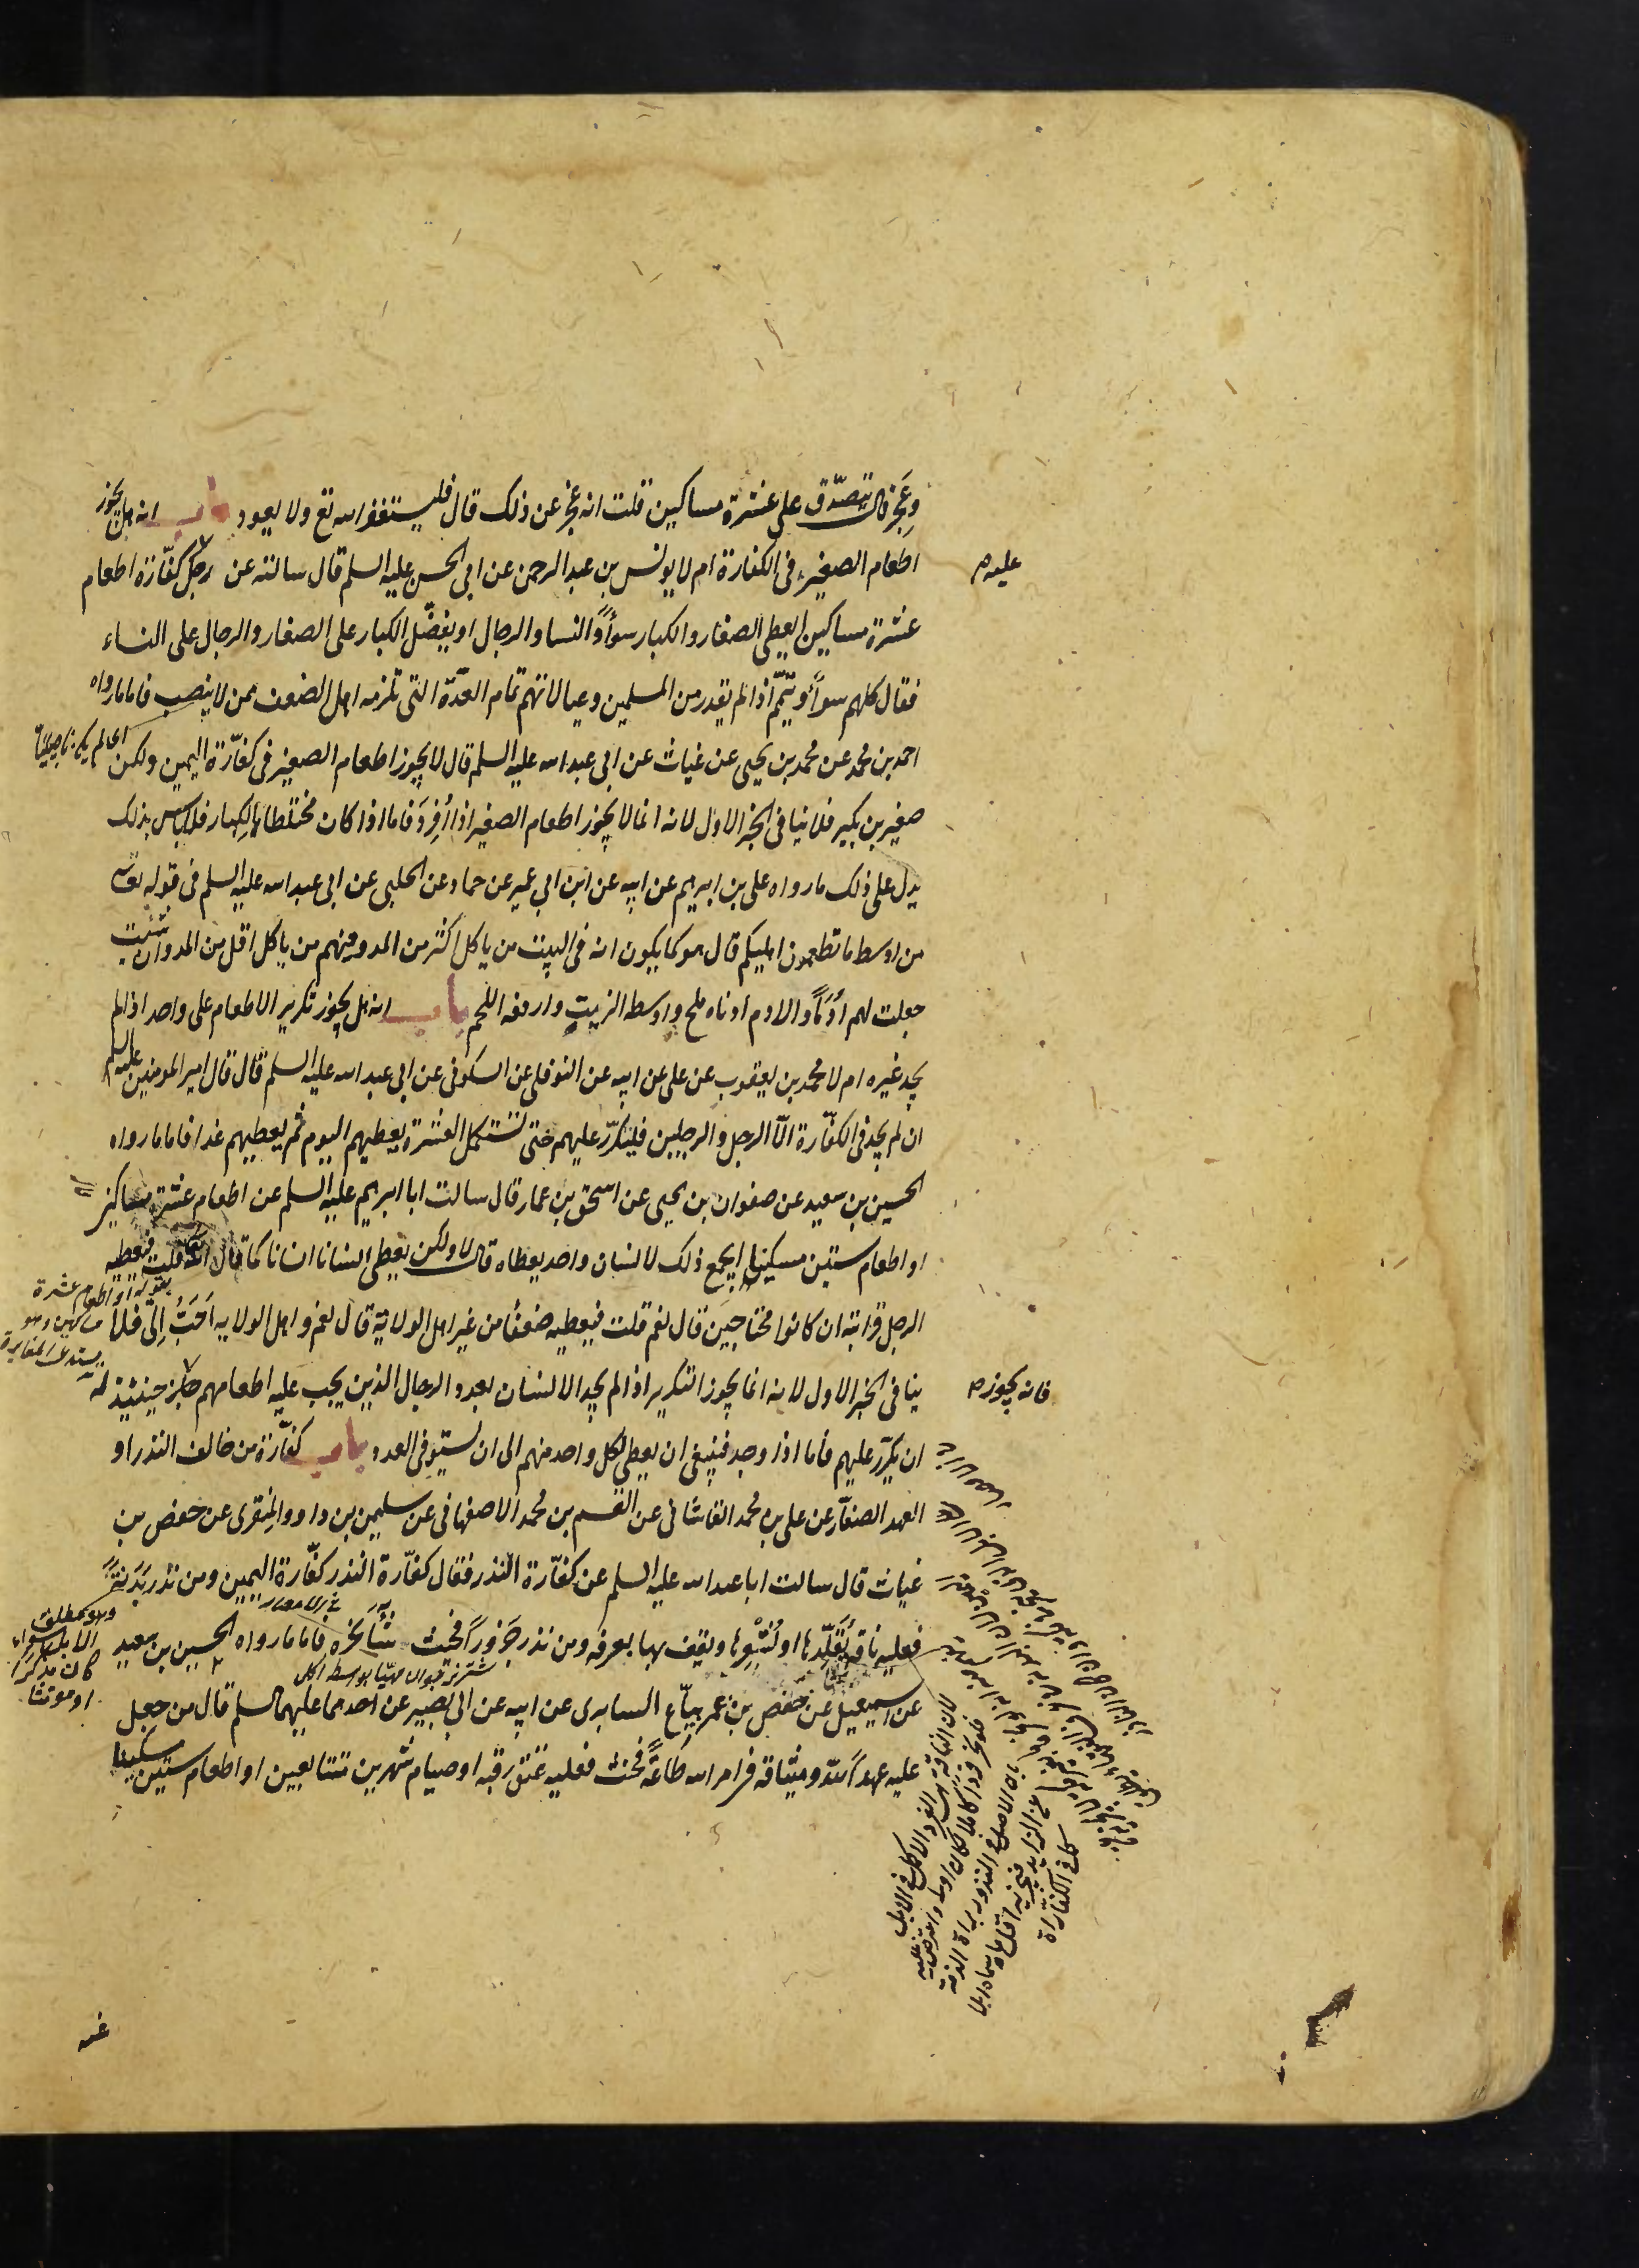 وعجز قال يتصدّق على عشرة مساكين قلت انه عجز عن ذلك قال فليستغفر الله تع ولا يعود باب انه هل يجوز
اطعام الصغير فى الكفارة ام لا يونس بن عبد الرحمن عن ابى الحسن عليه السلم قال سالته عن رجل كفّارة اطعام
عليه
عشرة مساكين ايعطى الصغار والكبار سوأً والنسا والرجال او يفضّل الكبار على الصغار والرجال على النساء
فقال كلهم سوأً ويتمّم اذا لم يقدر من المسلمين وعيالاتهم تمام العدّة التى تلزمه اهل الضعف ممن لا ينصب فاما ما رواه
احمد بن محمد عن محمد بن يحيى عن غياث عن ابى عبد الله عليه السلم قال لا يجوز اطعام الصغير فى كفّارة اليمين ولكن
صغيرين بكبير فلا ينافى الخبر الاول لانه انما لا يجوز اطعام الصغير اذا اُفرِدَ فاما اذا كان مختلطا بالكبار فلا باس بذلك
يدل على ذلك ما رواه على بن ابرهيم عن ابيه عن ابن ابي عمير عن حماد عن الحلبى عن ابى عبد الله عليه السلم فى قوله تعالى
من اوسط ما تطعمون اهليكم قال هو كما يكون انه فى البيت من ياكل اكثر من المد ومنهم من ياكل اقل من المد وان شئت
جعلت لهم اُدُماً والادم ادناه ملح واوسطه الزيت وارفعه اللحم باب انه هل يجوز تكرير الاطعام على واحد اذا لم
يجد غيره ام لا محمد بن يعقوب عن على عن ابيه عن النوفلى عن السكونى عن ابى عبد الله عليه السلم قال قال امير المومنين عليه السلم
ان لم يجد فى الكفّارة الّا الرجل والرجلين فليكرّر عليهم حتى تستكمل العشرة يعطيهم اليوم ثم يعطيهم غدا فاما ما رواه
الحسين بن سعيد عن صفوان بن يحيى عن اسحق بن عمار قال سالت ابا ابرهيم عليه السلم عن اطعام عشرة مساكين
او اطعام ستين مسكينا ايجمع ذلك لانسان واحد يعطاه قال لا ولكن يعطى انسانا انسانا كما قال الله قلت فيعطيه
الرجل قرابته ان كانوا محتاجين قال نعم قلت فيعطيه ضعفًا من غير اهل الولاية قال نعم واهل الولايه اَحَبُّ اِلىّ فلا
ينافى الخبر الاول لانه انما يجوز التكرير اذا لم يجد الانسان بعدد الرجال الذين يجب عليه اطعامهم جاز حينئذ له
فانه يجوز
ان يكرّر عليهم فاما اذا وجد فينبغى ان يعطى لكل واحد منهم الى ان يستوفى العدد باب كفّارة من خالف النذر او
العهد الصفّار عن على بن محمد القاشانى عن القسم بن محمد الاصفهانى عن سليمن بن داود المِنقرى عن حفص بن
غياث قال سالت ابا عبد الله عليه السلم عن كفّارة النذر فقال كفّارة النذر كفّارة اليمين ومن نذر بَدَنةً
فعليه ناقة يُقَلِّدها او يُشْعِرها ويقف بها بعرفه ومن نذر جَزُوراً فحيث شآ نحره فاما ما رواه الحسين بن سعيد
عن اسمعيل عن حفص بن عمر بيّاع السابرى عن ابيه عن ابى بصير عن احدهما عليهما السلم قال من جعل
عليه عهداً لله وميثاقه فى امر لله طاعةً فحنث فعليه عتق رقبه او صيام شهرين متتابعين او اطعام ستين مسكينا
بقوله او اطعام عشرة
مساكين وهو
يستدعى المغايرة
وهو يطلق
كان مذكرا
او مونثا